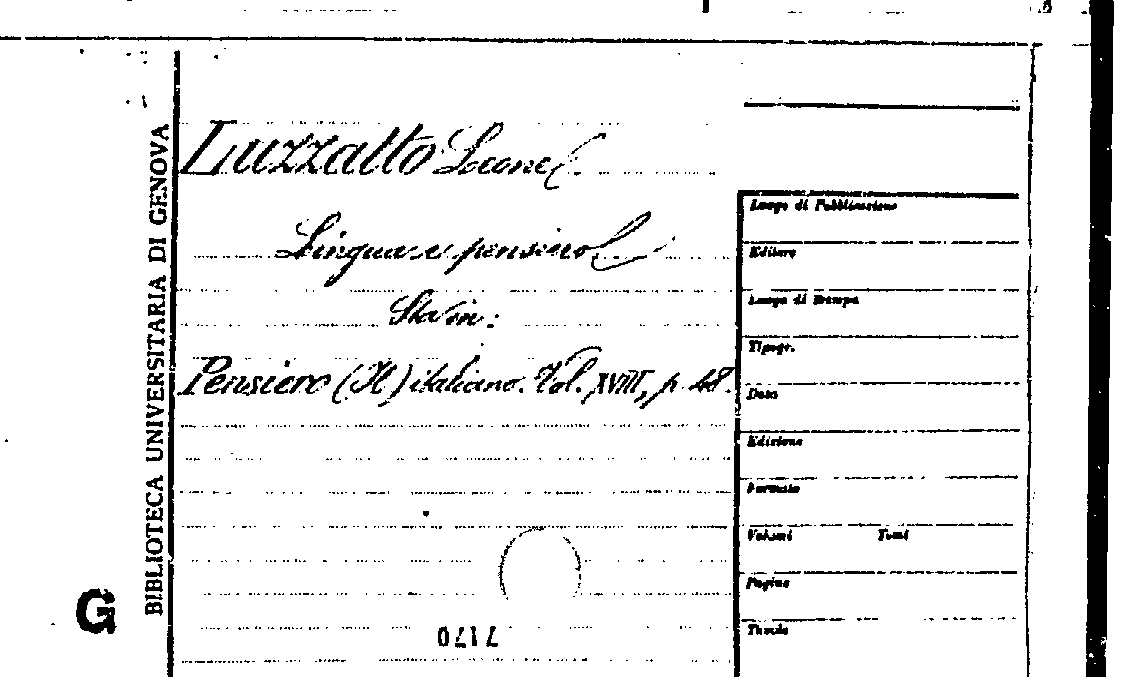 BIBLIOTECA UNIVERSITARIA DI GENOVA
Luzzatto Leone
Lingua e pensiero
Sta in:
Pensiero (Il) italiano. Vol. XVIII, p. 48.
Luogo di Pubblicazione
Editore
Luogo di Stampa
Tipogr.
Data
Edizione
Formato
Volumi Tomi
Pagine
Tavole
G
7170